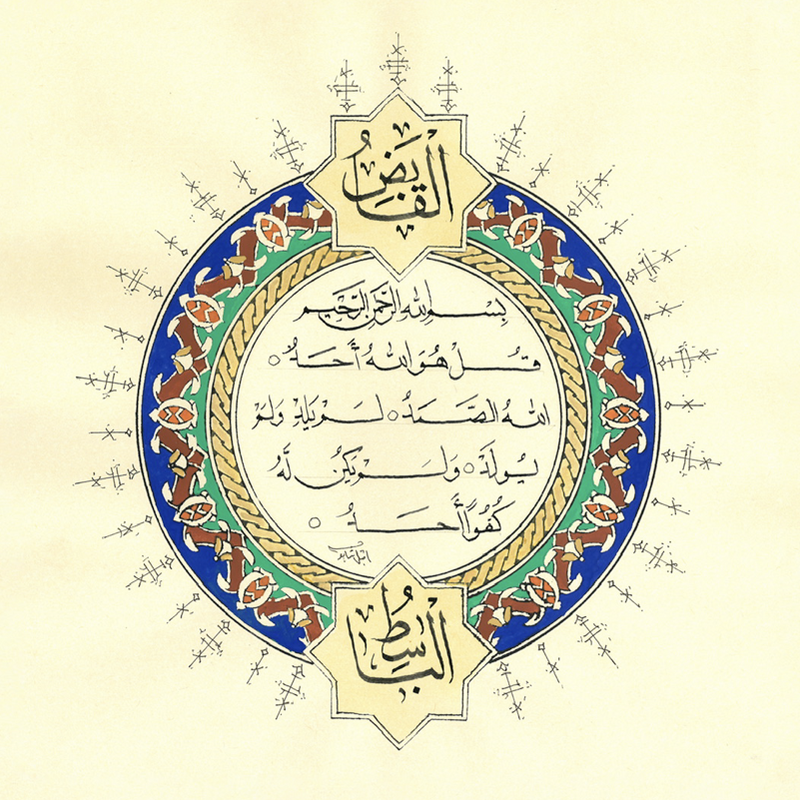 القَابِضُ
بِسْمِ اللهِ الرَّحْمٰنِ الرَّحِيمِ
قُلْ هُوَ اللهُ أَحَدٌ ○
اللهُ الصَّمَدُ ○ لَمْ يَلِدْ وَلَمْ
يُولَدْ ○ وَلَمْ يَكُنْ لَّهُ
كُفُوًا أَحَدٌ ○
البَاسِطُ